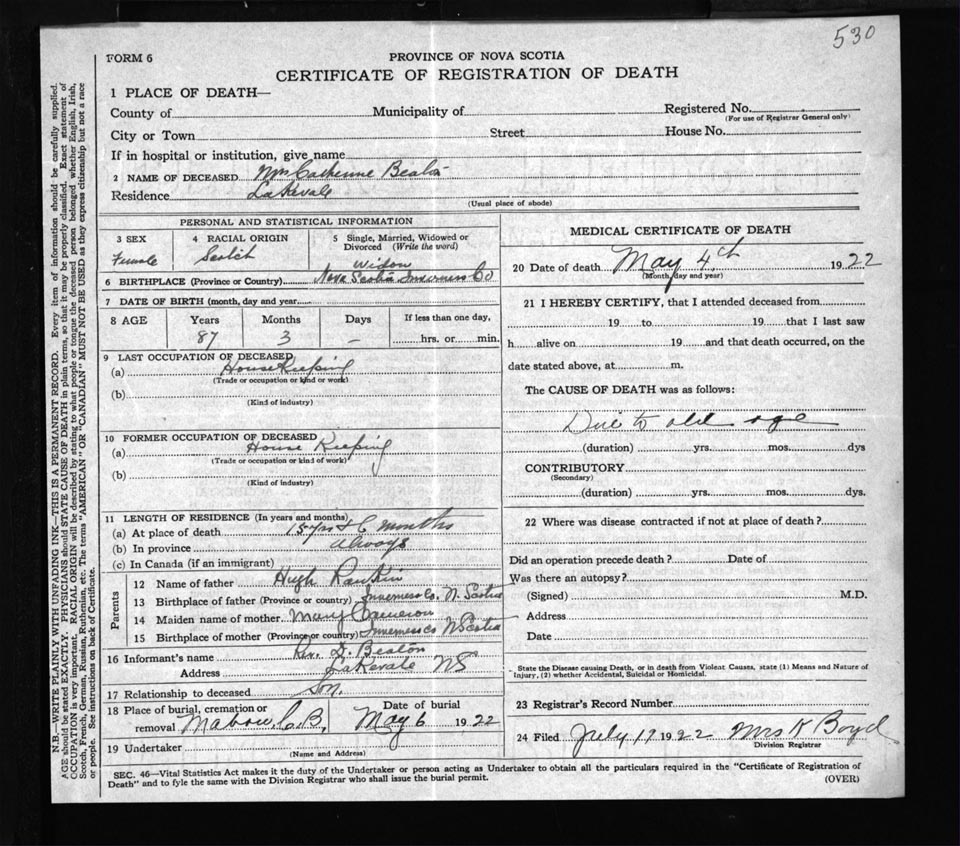 530
FORM 6
PROVINCE OF NOVA SCOTIA
CERTIFICATE OF REGISTRATION OF DEATH
1 PLACE OF DEATH—
County of Municipality of Registered No.
(For use of Registrar General only)
City or Town Street House No.
If in hospital or institution, give name
2 NAME OF DECEASED Mrs Catherine Beaton
Residence Lakevale
(Usual place of abode)
PERSONAL AND STATISTICAL INFORMATION
3 SEX 4 RACIAL ORIGIN 5 Single, Married, Widowed or
Divorced (Write the word)
Female Scotch Widow
6 BIRTHPLACE (Province or Country) Nova Scotia Inverness Co
7 DATE OF BIRTH (month, day and year)
8 AGE Years Months Days If less than one day,
87 3 — hrs. or min.
9 LAST OCCUPATION OF DECEASED
(a) House Keeping
(Trade or occupation or kind or work)
(b)
(Kind of industry)
10 FORMER OCCUPATION OF DECEASED
(a) House Keeping
(Trade or occupation or kind of work)
(b)
(Kind of industry)
11 LENGTH OF RESIDENCE (In years and months)
(a) At place of death 15 yrs & 6 months
(b) In province always
(c) In Canada (if an immigrant)
Parents
12 Name of father Hugh Rankin
13 Birthplace of father (Province or country) Inverness Co. N. Scotia
14 Maiden name of mother Mary Cameron
15 Birthplace of mother (Province or country) Inverness Co N Scotia
16 Informant's name Rev. D. Beaton
Address Lakevale NS
17 Relationship to deceased Son.
18 Place of burial, cremation or Date of burial
removal Mabou, C.B. May 6 1922
19 Undertaker
(Name and Address)
MEDICAL CERTIFICATE OF DEATH
20 Date of death May 4th 1922
(Month, day and year)
21 I HEREBY CERTIFY, that I attended deceased from
19 to 19 that I last saw
h alive on 19 and that death occurred, on the
date stated above, at m.
The CAUSE OF DEATH was as follows:
Due to old age
(duration) yrs. mos. dys
CONTRIBUTORY
(Secondary)
(duration) yrs. mos. dys.
22 Where was disease contracted if not at place of death?
Did an operation precede death? Date of
Was there an autopsy?
(Signed) M.D.
Address
Date
State the Disease causing Death, or in death from Violent Causes, state (1) Means and Nature of
Injury, (2) whether Accidental, Suicidal or Homicidal.
23 Registrar's Record Number
24 Filed July 17 1922 Mrs K Boyd
Division Registrar
SEC. 46—Vital Statistics Act makes it the duty of the Undertaker or person acting as Undertaker to obtain all the particulars required in the "Certificate of Registration of
Death" and to fyle the same with the Division Registrar who shall issue the burial permit. (OVER)
N.B.—WRITE PLAINLY WITH UNFADING INK—THIS IS A PERMANENT RECORD. Every item of information should be carefully supplied.
AGE should be stated EXACTLY. PHYSICIANS should STATE CAUSE OF DEATH in plain terms, so that it may be properly classified. Exact statement of
OCCUPATION is very important. RACIAL ORIGIN will be described by stating to what people or tongue the deceased person belonged whether English, Irish,
Scotch, French, German, Russian, Ruthenian, etc. The terms "AMERICAN" OR "CANADIAN" MUST NOT BE USED as they express citizenship but not a race
or people. See instructions on back of Certificate.